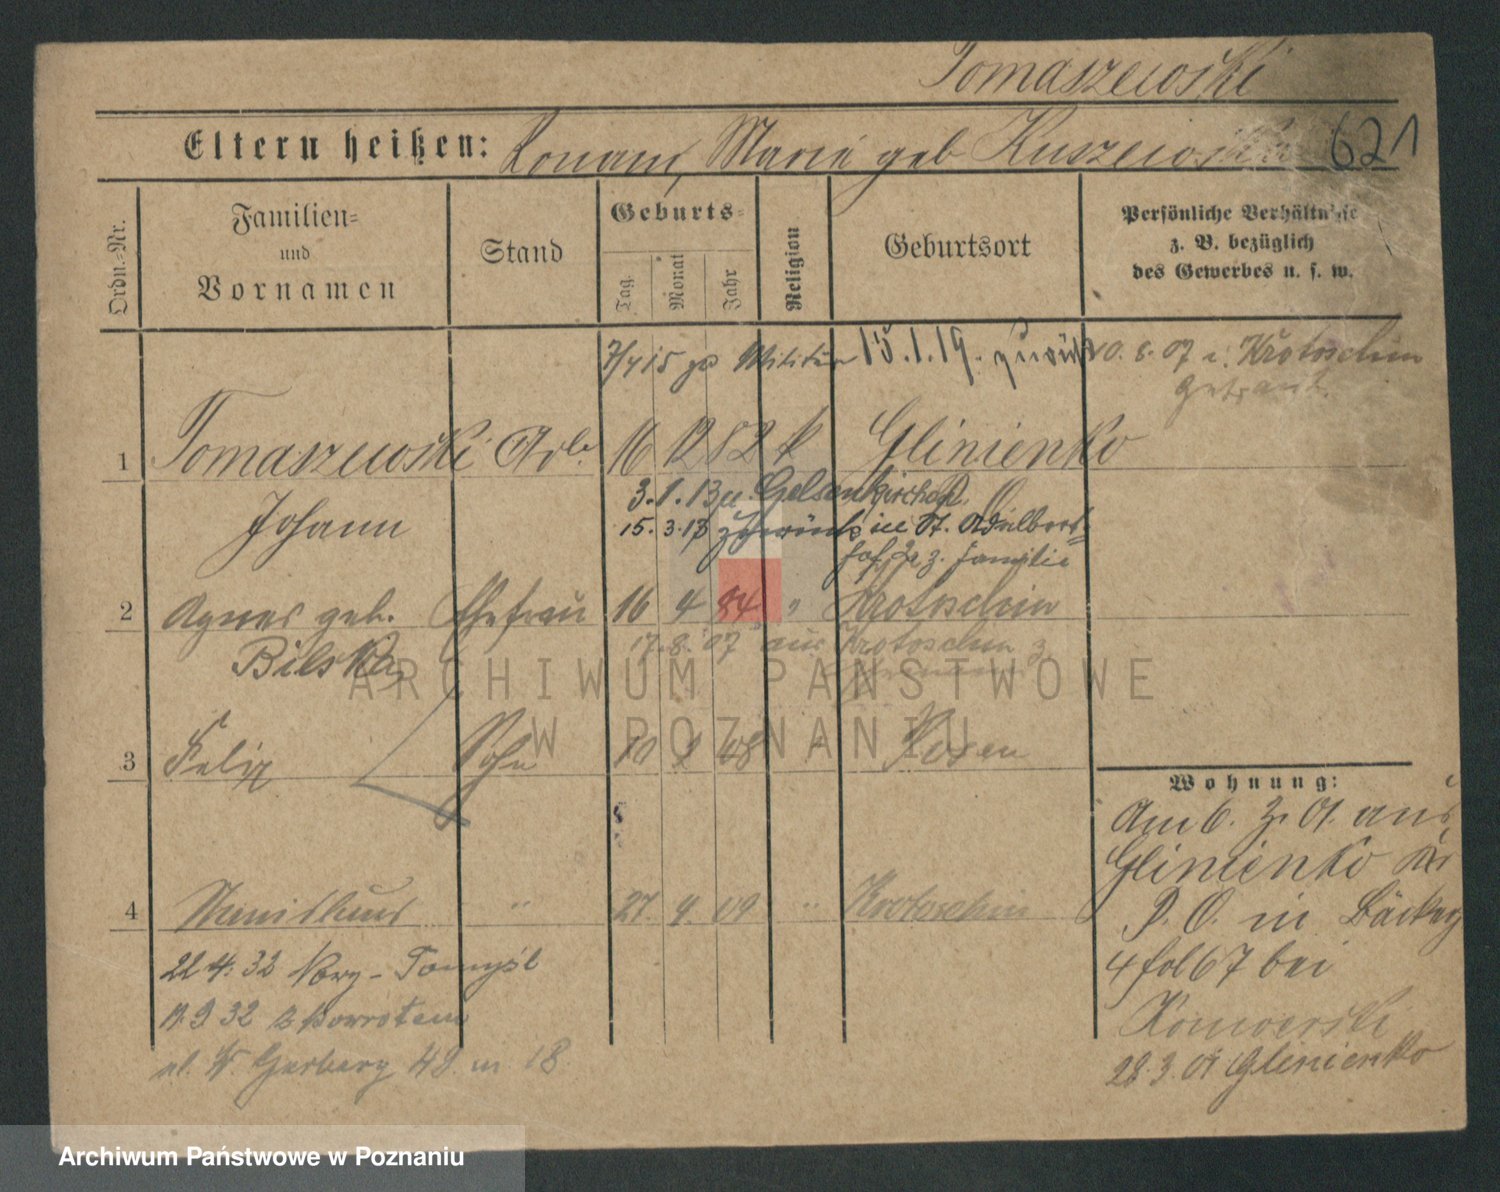 Tomaszewski
Eltern heißen: Roman, Marie geb Kuszewska 621
Ordn.-Nr.
Familien=
und
Vornamen
Stand
Geburts=
Tag
Monat
Jahr
Religion
Geburtsort
Persönliche Verhältnisse
z. B. bezüglich
des Gewerbes u. s. w.
15 zu Militär 15.1.19. zurück
10. 8. 07 i. Krotoschin
getraut.
1 Tomaszewski Arb. 16 12 82 k Glinienko
Johann
3.1.13 n. Gelsenkirchen
15. 3. 13 zurück in St. Adalbert=
z. Familie
2 Agnes geb. Ehefrau 16 4 84 " Krotoschin
Bilska
17. 8. 07 aus Krotoschin z.
3 Felix Sohn 10 08 " Posen
4 Stanislaus " 27. 4. 09 " Krotoschin
22 4. 32 Nowy-Tomyśl
19. 9 32 z powrotem
ul. Garbary 49. m 18.
Wohnung:
Am 6. 01. aus
Glinienko Kr
P. O. in Bäcker
4 fol 67 bei
28. 3. 01 Glinienko
ARCHIWUM PAŃSTWOWE
W POZNANIU
Archiwum Państwowe w Poznaniu